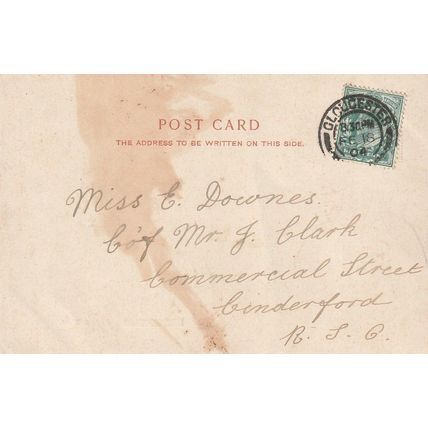 POST CARD
THE ADDRESS TO BE WRITTEN ON THIS SIDE.
GLOUCESTER
8.30 PM
04
Miss E. Downes.
C/of Mr. J. Clark
Commercial Street
Cinderford
R. S. O.